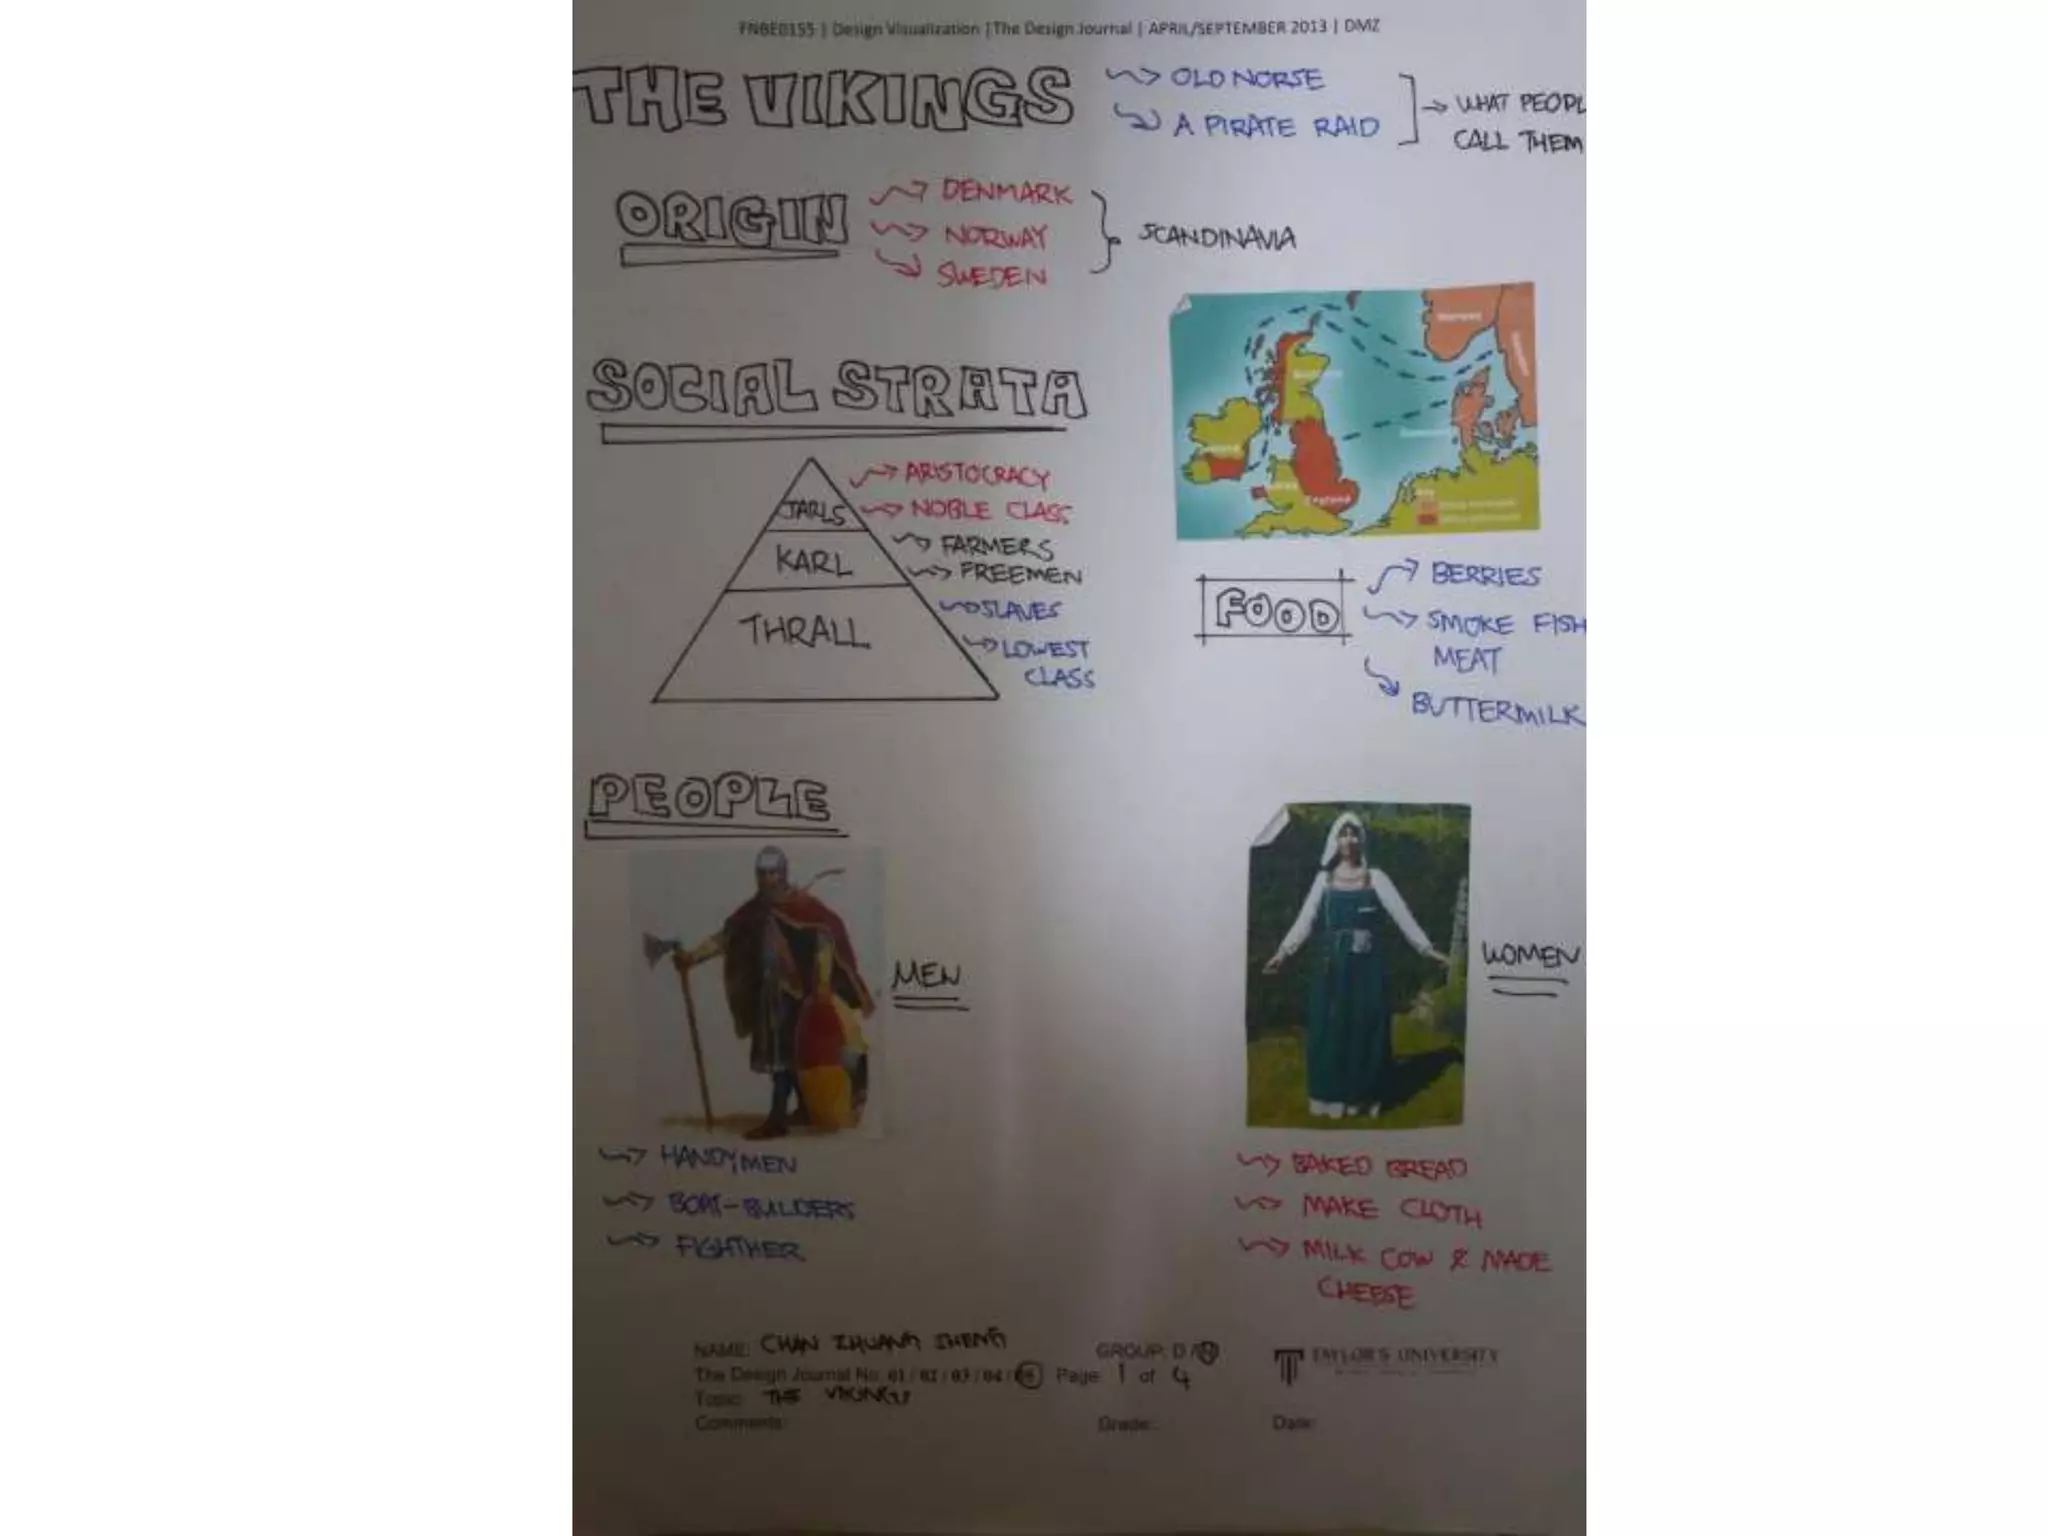 FNBE0155 | Design Visualization | The Design Journal | APRIL/SEPTEMBER 2013 | DMZ
THE VIKINGS
OLD NORSE
A PIRATE RAID
WHAT PEOPL
CALL THEM
ORIGIN
DENMARK
NORWAY
SWEDEN
SCANDINAVIA
SOCIAL STRATA
JARLS
ARISTOCRACY
NOBLE CLASS
KARL
FARMERS
FREEMEN
THRALL
SLAVES
LOWEST
CLASS
Norway
England
FOOD
BERRIES
SMOKE FISH
MEAT
BUTTERMILK
PEOPLE
MEN
HANDYMEN
BOAT-BUILDERS
FIGHTHER
WOMEN
BAKED BREAD
MAKE CLOTH
MILK COW & MADE
CHEESE
NAME: CHAN ZHUANG SHENG
GROUP: D /
The Design Journal No. 01 / 02 / 03 / 04 / Page 1 of 4
Topic: THE VIKINGS
Comments:
Grade:
Date:
TAYLOR'S UNIVERSITY